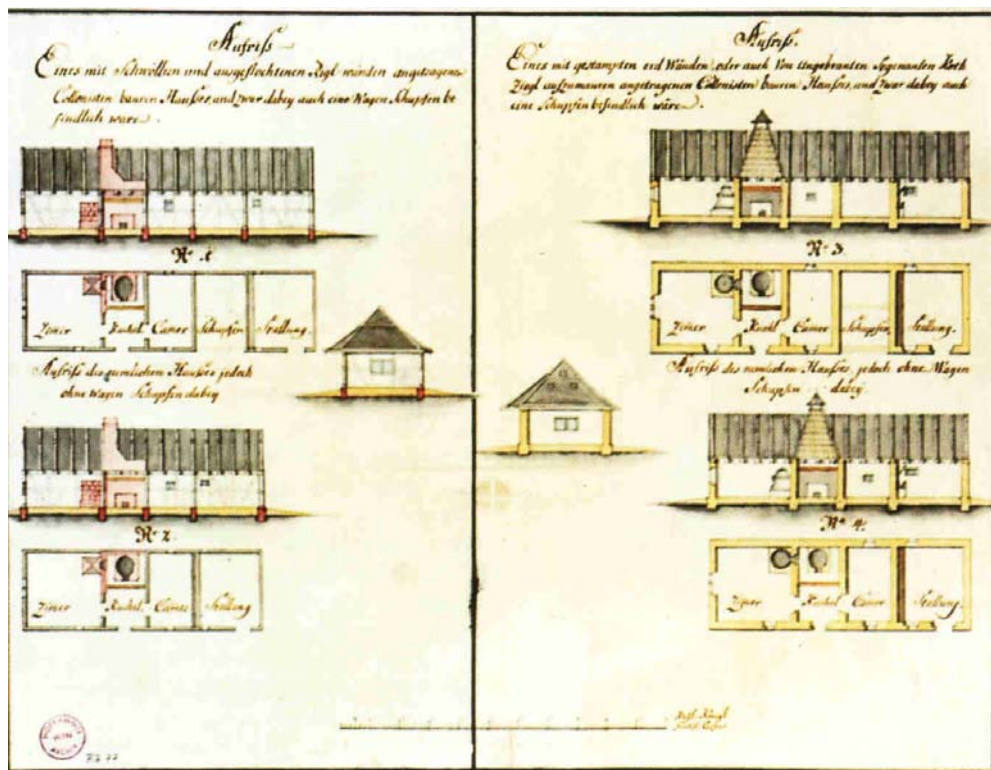 Aufriß
Eines mit Schwölken und ausgeflochtenen Rigl wänden angetragenen
Collonisten bauren Haußes, und zwar dabey auch eine Wagen Schupfen be
findlich ware.
Nº 1
Zimer Kuchel Camer Schupfen Stallung.
Aufriß des nemlichen Haußes jedoch
ohne Wagen Schupfen dabey
Nº 2.
Zimer Kuchel Camer Stallung
Aufriß.
Eines mit gestampten erd Wänden, oder auch Von Ungebranten Sogenanten Koth
Ziegl aufzumauren angetragenen Collonisten bauren Haußes, und zwar dabey auch
eine Schupfen befindlich wäre.
Nº 3.
Zimer Kuchl Camer Schupfen Stallung.
Aufriß des nemlichen Haußes, jedoch ohne Wagen
Schupfen dabey.
Nº 4.
Zimer Kuchel Camer Stallung.